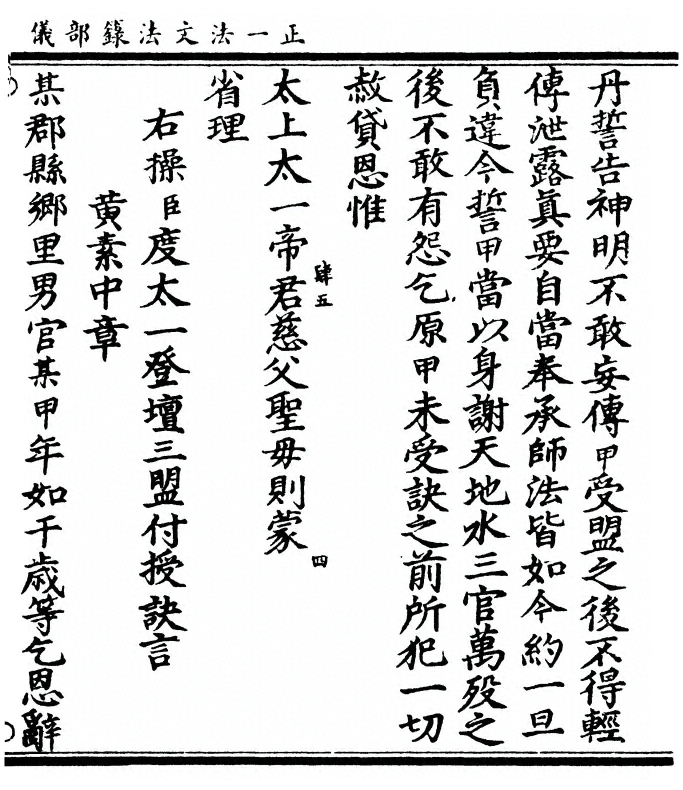 正一法文法籙部儀
丹誓告神明不敢妄傳甲受盟之後不得輕
傳泄露真要自當奉承師法皆如今約一旦
負違今誓甲當以身謝天地水三官萬歿之
後不敢有怨乞原甲未受訣之前所犯一切
赦貸恩惟
太上太一帝君慈父聖母則蒙
肆五
四
省理
右操臣度太一登壇三盟付授訣言
黃素中章
某郡縣鄉里男官某甲年如干歲等乞恩辭